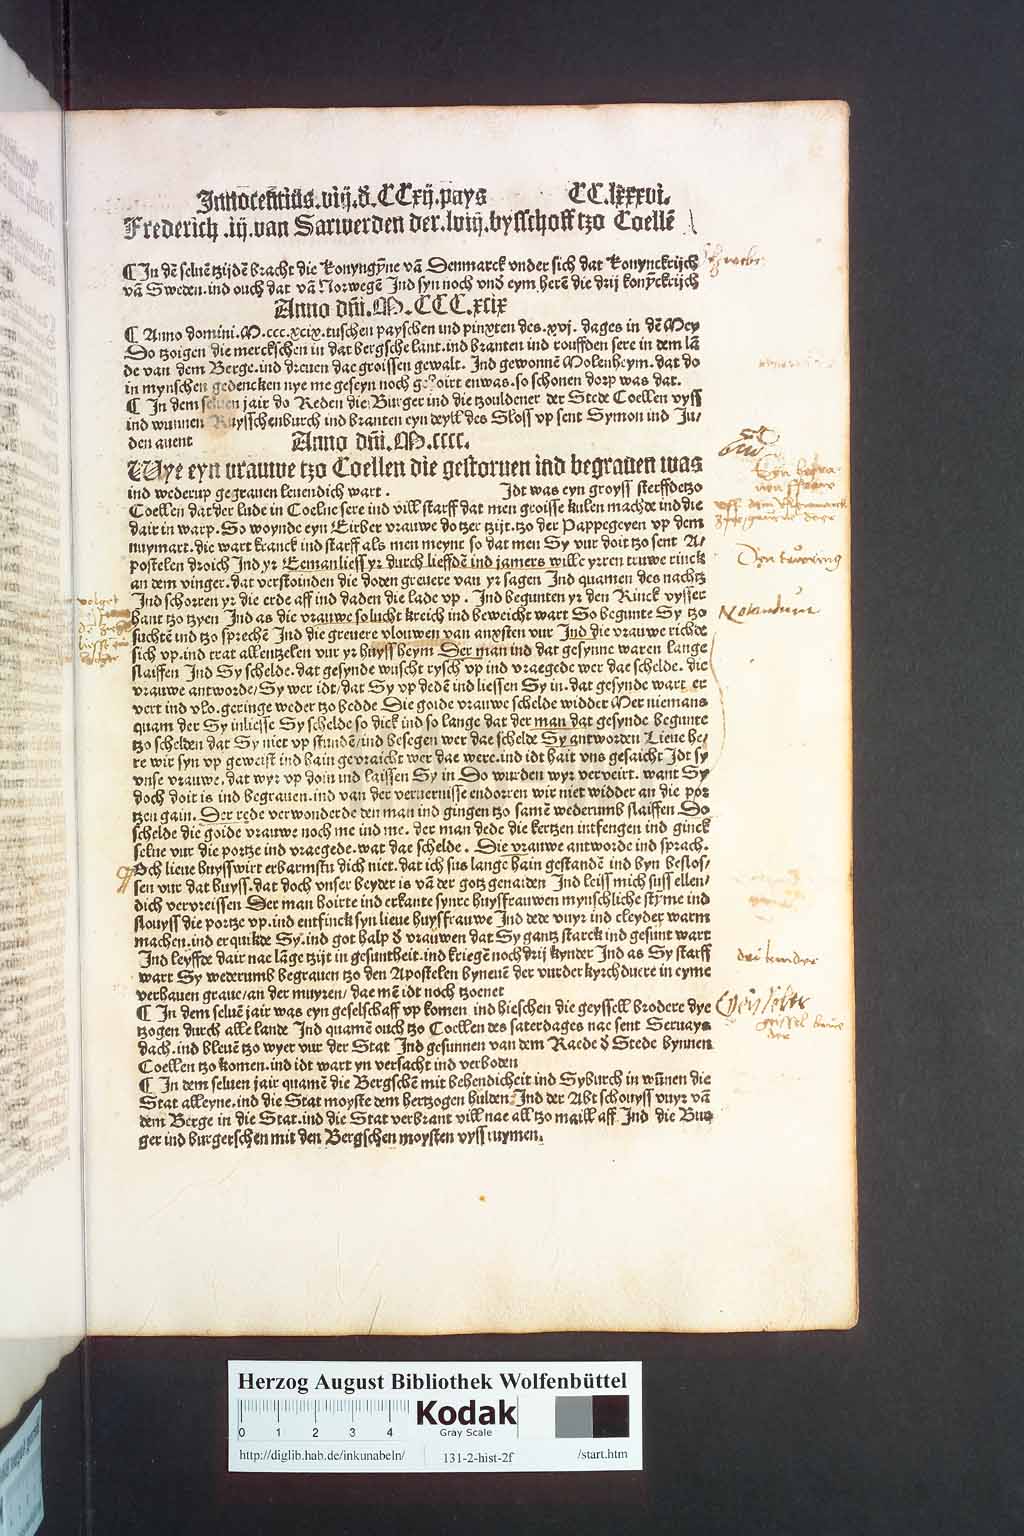 Innocentius.viij.đ.CCxij.pays CC.lxxxvi.
Frederich .iij.van Sarwerden der.lviij.bysschoff tzo Coellē
¶ In dē seluē tzijdē bracht die Konyngȳne vā Denmarck vnder sich dat Konynckrijch
vā Sweden.ind ouch dat vā Norwegē Ind syn noch vnđ eym herē die drij konȳckrijch
Anno dñi.M.CCC.xcix
¶ Anno domini.M.ccc.xcix.tuschen payschen ind pinxten des.xvj. dages in dē Mey
Do tzoigen die merckschen in dat bergsche lant.ind branten ind rouffden sere in dem lā
de van dem Berge.ind dreuen dae groissen gewalt. Ind gewonnē Molenheym.dat do
in mynschen gedencken nye me geseyn noch gehoirt enwas.so schonen dorp was dat.
¶ In dem seluen jair do Reden die Burger ind die tzouldener der Stede Coellen vyss
ind wunnen Ruysschenburch ind branten eyn deyll des Sloss vp sent Symon ind Ju/
den auent Anno dñi.M.cccc.
Wye eyn vrauwe tzo Coellen die gestoruen ind begrauen was
ind wederup gegrauen leuendich wart . Idt was eyn groyss sterffdetzo
Coellen dat der lude in Coelne sere ind vill starff dat men groisse kulen machde ind die
dair in warp. So woynde eyn Eirber vrauwe do tzer tzijt.tzo der Pappegeyen vp dem
nuymart.die wart kranck ind starff als men meynt so dat men Sy vur doit tzo sent A/
postelen droich Ind yr Eemanliess yr durch lieffdē ind jamers wille yrren truwe rinck
an dem vinger.dat verstoinden die doden greuere van yr sagen Ind quamen des nachtz
Ind schorren yr die erde aff ind daden die lade vp . Ind begunten yr den Rinck vysser
hant tzo tzyen Ind as die vrauwe so lucht kreich ind beweicht wart So begunte Sy tzo
suchtē ind tzo sprechē Ind die greuere vlouwen van anxsten vur Ind die vrauwe richde
sich vp.ind trat allentzelen vur yr huyssheym Der man ind dat gesynne waren lange
slaiffen Ind Sy schelde.dat gesynde wuscht rysch vp ind vraegede wer dae schelde. die
vrauwe antworde/Sy wer idt/dat Sy vp dedē ind liessen Sy in.dat gesynde wart er
vert ind vlo.geringe weder tzo bedde Die goide vrauwe schelde widder Mer niemans
quam der Sy inliesse Sy schelde so dick ind so lange dat der man dat gesynde begunte
tzo schelden dat Sy niet vp stundē/ind besegen wer dae schelde Sy antworden Lieue he/
re wir syn vp geweist ind hain gevraicht wer dae were.ind idt hait vns gesaicht Idt sy
vnse vrauwe.dat wyr vp doin ind laissen Sy in Do wurden wyr verveirt. want Sy
doch doit is ind begrauen.ind van der veruernisse endorren wir niet widder an die por
tzen gain. Der rede verwonderde den man ind gingen tzo samē wederumb slaiffen Do
schelde die goide vrauwe noch me ind me. der man dede die kertzen intfengen ind ginck
selue vur die portze ind vraegede.wat dae schelde . Die vrauwe antworde ind sprach.
Och lieue huysswirt erbarmstu dich niet.dat ich sus lange hain gestandē ind byn beslos/
sen vur dat huyss.dat doch vnser beyder is vā der gotz genaiden Ind leiss mich suss ellen/
dich vervreissen Der man hoirte ind erkante synre huysfrauwen mynschliche stȳme ind
slouyss die portze vp.ind entfinck syn lieue huysfrauwe Ind dede vuyr ind cleyder warm
machen.ind erquikde Sy.ind got halp đ vrauwen dat Sy gantz starck ind gesunt wart
Ind leyffde dair nae lāge tzijt in gesuntheit.ind kriegē noch drij kynder Ind as Sy starff
wart Sy wederumb begrauen tzo den Apostelen byneuē der vurder kyrchduere in eyme
verhauen graue/an der muyren/ dae mē idt noch tzoenet
¶ In dem seluē jair was eyn geselschaff vp komen ind hieschen die geyssell brodere dye
tzogen durch alle lande Ind quamē ouch tzo Coellen des saterdages nae sent Seruays
dach.ind bleuē tzo wyer vur der Stat Ind gesunnen van dem Raede đ Stede bynnen
Coellen tzo komen.ind idt wart yn versacht ind verboden
¶ In dem seluen jair quamē die Bergschē mit behendicheit ind Syburch in wūnen die
Stat alleyne.ind die Stat moyste dem hertzogen hulden: Ind der Abt schouyss vuyr vā
dem Berge in die Stat.ind die Stat verbrant vill nae all tzo maill aff Ind die Bur
ger ind burgerschen mit den Bergschen moysten vyss ruymen.
Notandum
drei kinder
Geissler
Herzog August Bibliothek Wolfenbüttel
Kodak
Gray Scale
0 1 2 3 4
http://diglib.hab.de/inkunabeln/ 131-2-hist-2f /start.htm